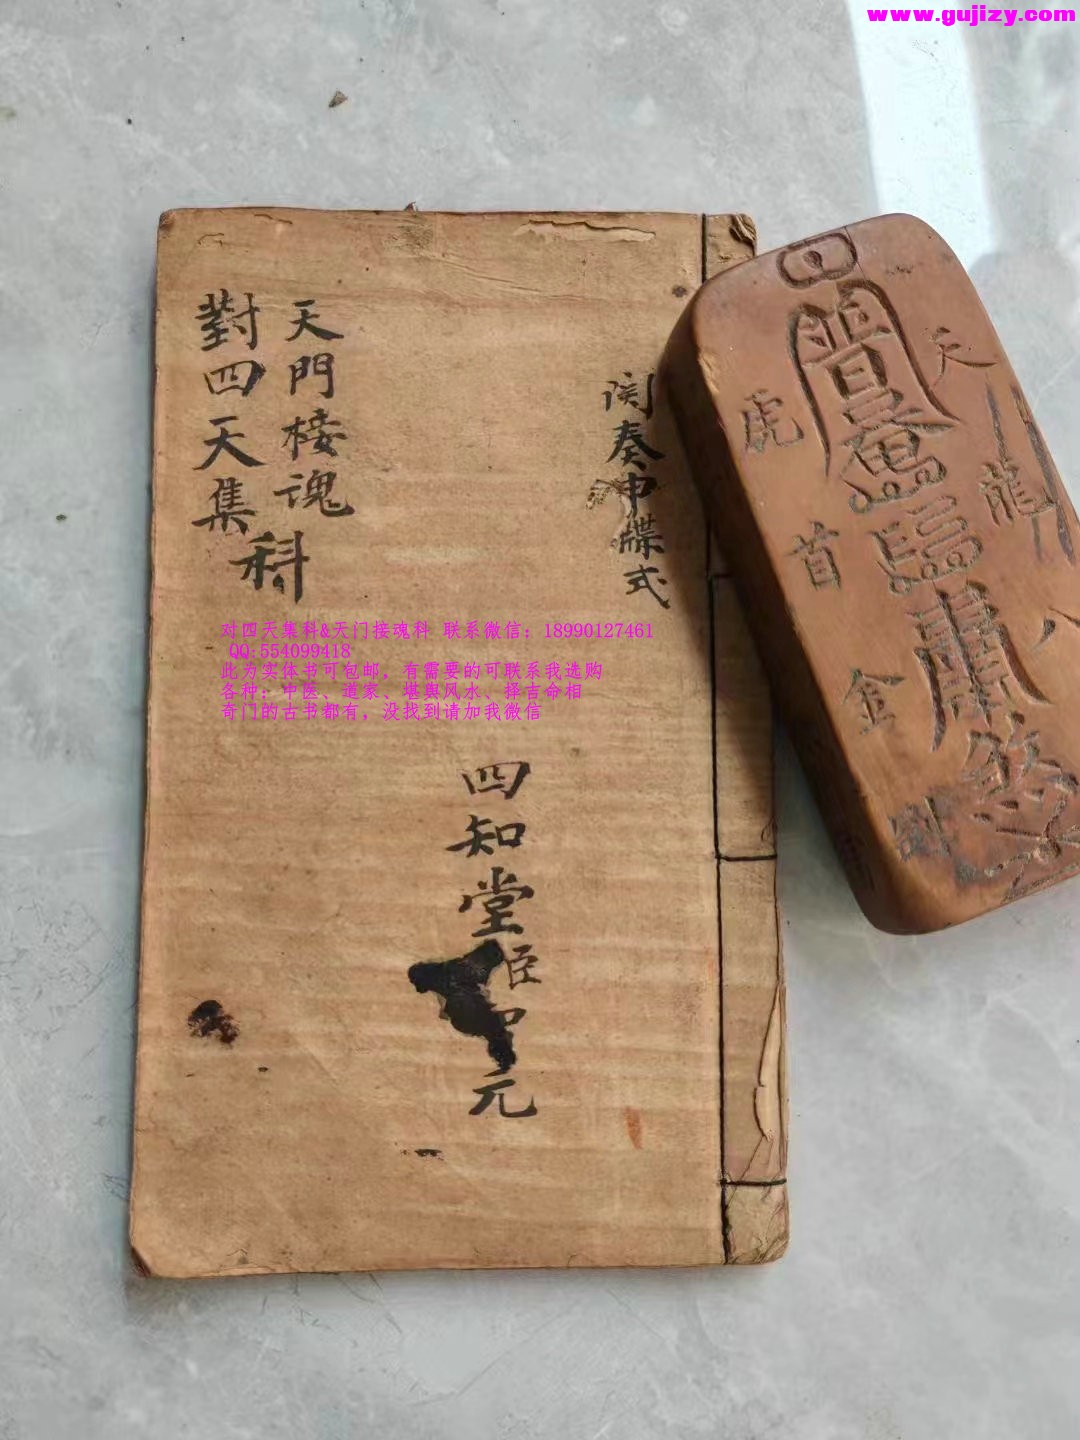 www.gujizy.com
天門接魂
對四天集
科
関奏申牒式
对四天集科&天门接魂科 联系微信：18990127461
QQ:554099418
此为实体书可包邮，有需要的可联系我选购
各种：中医、道家、堪舆风水、择吉命相
奇门的古书都有，没找到请加我微信
四知堂
臣
元
天
龍
八
虎
首
金